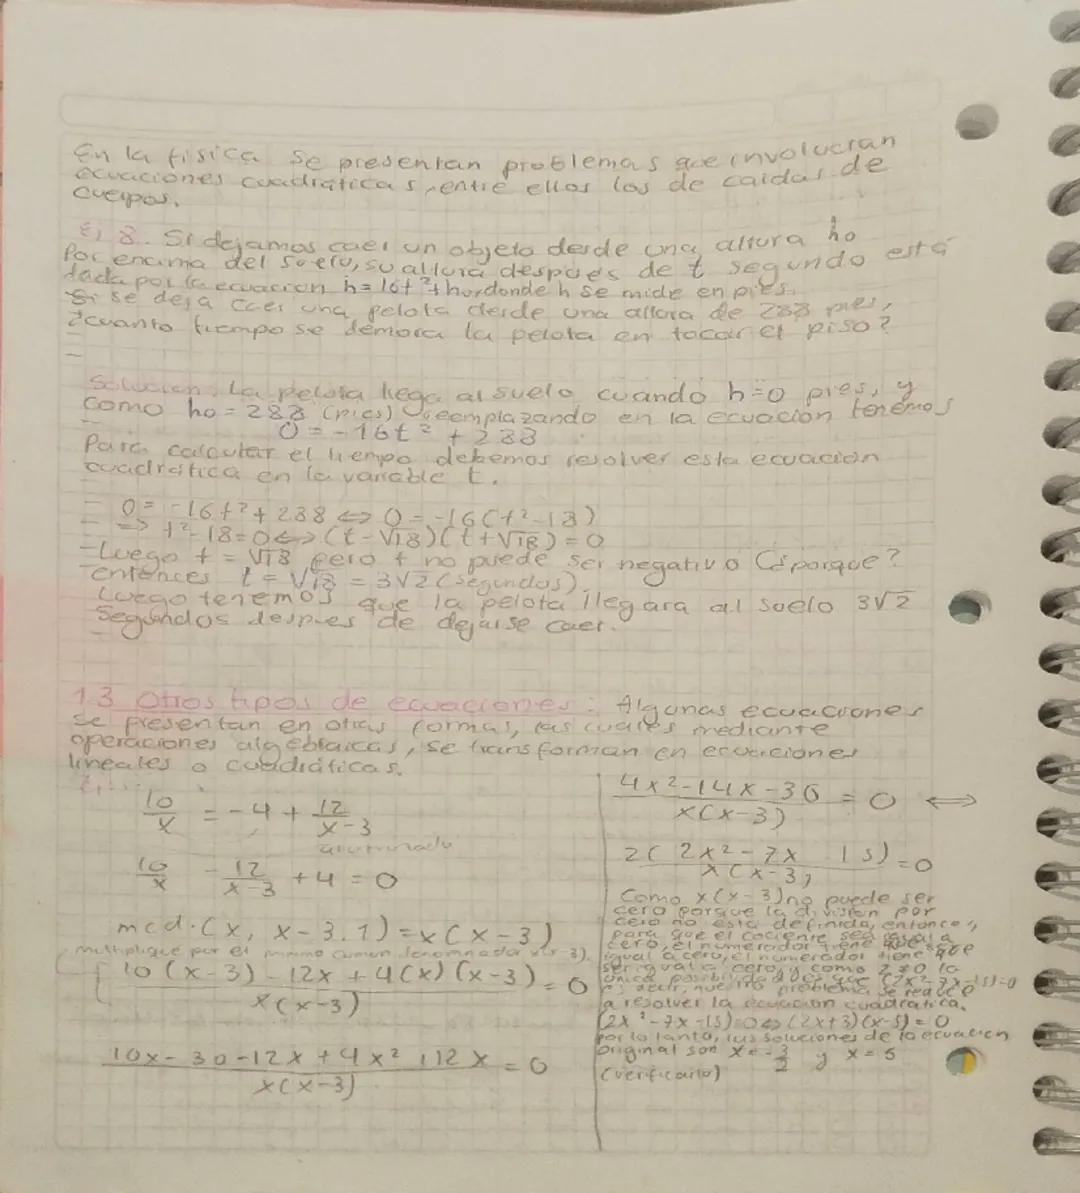 En la fisica se presentan problemas que involucran
ecuaciones cuadráticas, entre ellos los de caidas de
cuerpos.
Ej 8. Si dejamos caer un objeto desde una altura ho
Por encima del suelo, su altura después de t segundo está
dada por la ecuación h=16t²+ho, donde h se mide en pies.
Si se deja caer una pelota desde una altura de 288 pies,
¿cuanto tiempo se demora la pelota en tocar el piso?
Solución: La pelota llega al suelo cuando h=0 pies, y
como ho = 288 (pies) reemplazando en la ecuación tenemos
0 = -16t² + 288
Para calcular el tiempo debemos resolver esta ecuación
cuadrática en la variable t.
0 = -16t² + 288 <=> 0 = -16(t²-18)
=> t²-18=0 <=> (t-√18)(t+√18) = 0
-Luego t = √18 pero t no puede ser negativo (¿porque?
entonces t = √18 = 3√2 (segundos).
Luego tenemos que la pelota llegara al suelo 3√2
Segundos despues de dejarse caer.
1.3 Otros tipos de ecuaciones: Algunas ecuaciones
se presentan en otras formas, las cuales mediante
operaciones algebraicas, se transforman en ecuaciones
lineales o cuadráticas.
Ej:
10/x = -4 + 12/x-3
10/x - 12/x-3 + 4 = 0
mcd.(x, x-3.1)=x(x-3)
multiplique por el minimo comun denominador x(x-3).
10(x-3)-12x+4(x)(x-3)/x(x-3) = 0
10x-30-12x+4x²+12x/x(x-3) = 0
4x²-14x-30/x(x-3) = 0 <=>
2(2x²-7x 15)/x(x-3) = 0
Como x(x-3) no puede ser
cero porque la división por
cero no está definida, entonces,
para que el cociente sea igual a
cero, el numerador tiene que ser
igual a cero, el numerador tiene que
ser igual a cero, y como 2≠0 la
única posibilidad es que (2x²-7x-15)=0
es decir, nuestro problema se reduce
a resolver la ecuación cuadrática.
(2x²-7x-15)=0 <=> (2x+3)(x-5)=0
por lo tanto, las soluciones de la ecuación
original son x=-3/2 y x=5
(verificarlo)